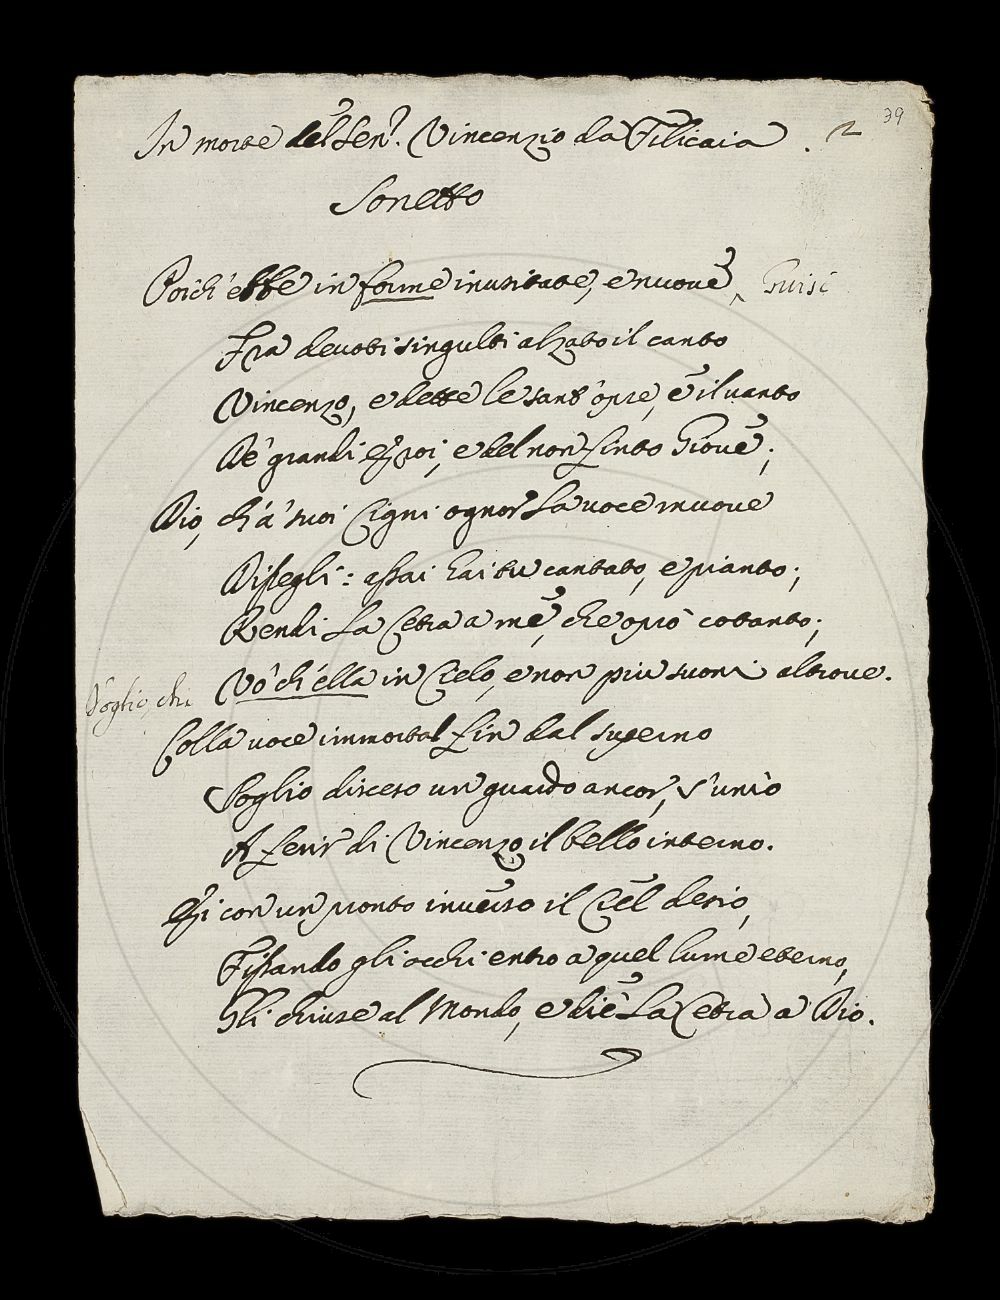 39
2
In morte del Sen.r Vincenzio da Filicaia.
Sonetto
Poich' ebbe in forme inusitate, e nuove, Guise
Fra devoti singulti alzato il canto
Vincenzo, e dette le sant' opre, e il vanto
De' grandi Eroi, e del non finto Giove;
Dio, ch' a' suoi Cigni ognor la voce muove
Dissegli: assai hai tu cantato, e pianto;
Rendi la Cetra a me, che oprò cotanto;
Voglio, chi Vò ch' ella in Cielo, e non più suoni altrove.
Colla voce immortal fin dal superno
Soglio disceso un guardo ancor, s' unìo
A ferir di Vincenzo il bello interno.
Ei con un pronto inverso il Ciel desio,
Fissando gli occhi entro a quel lume eterno,
Gli chiuse al Mondo, e diè la Cetra a Dio.